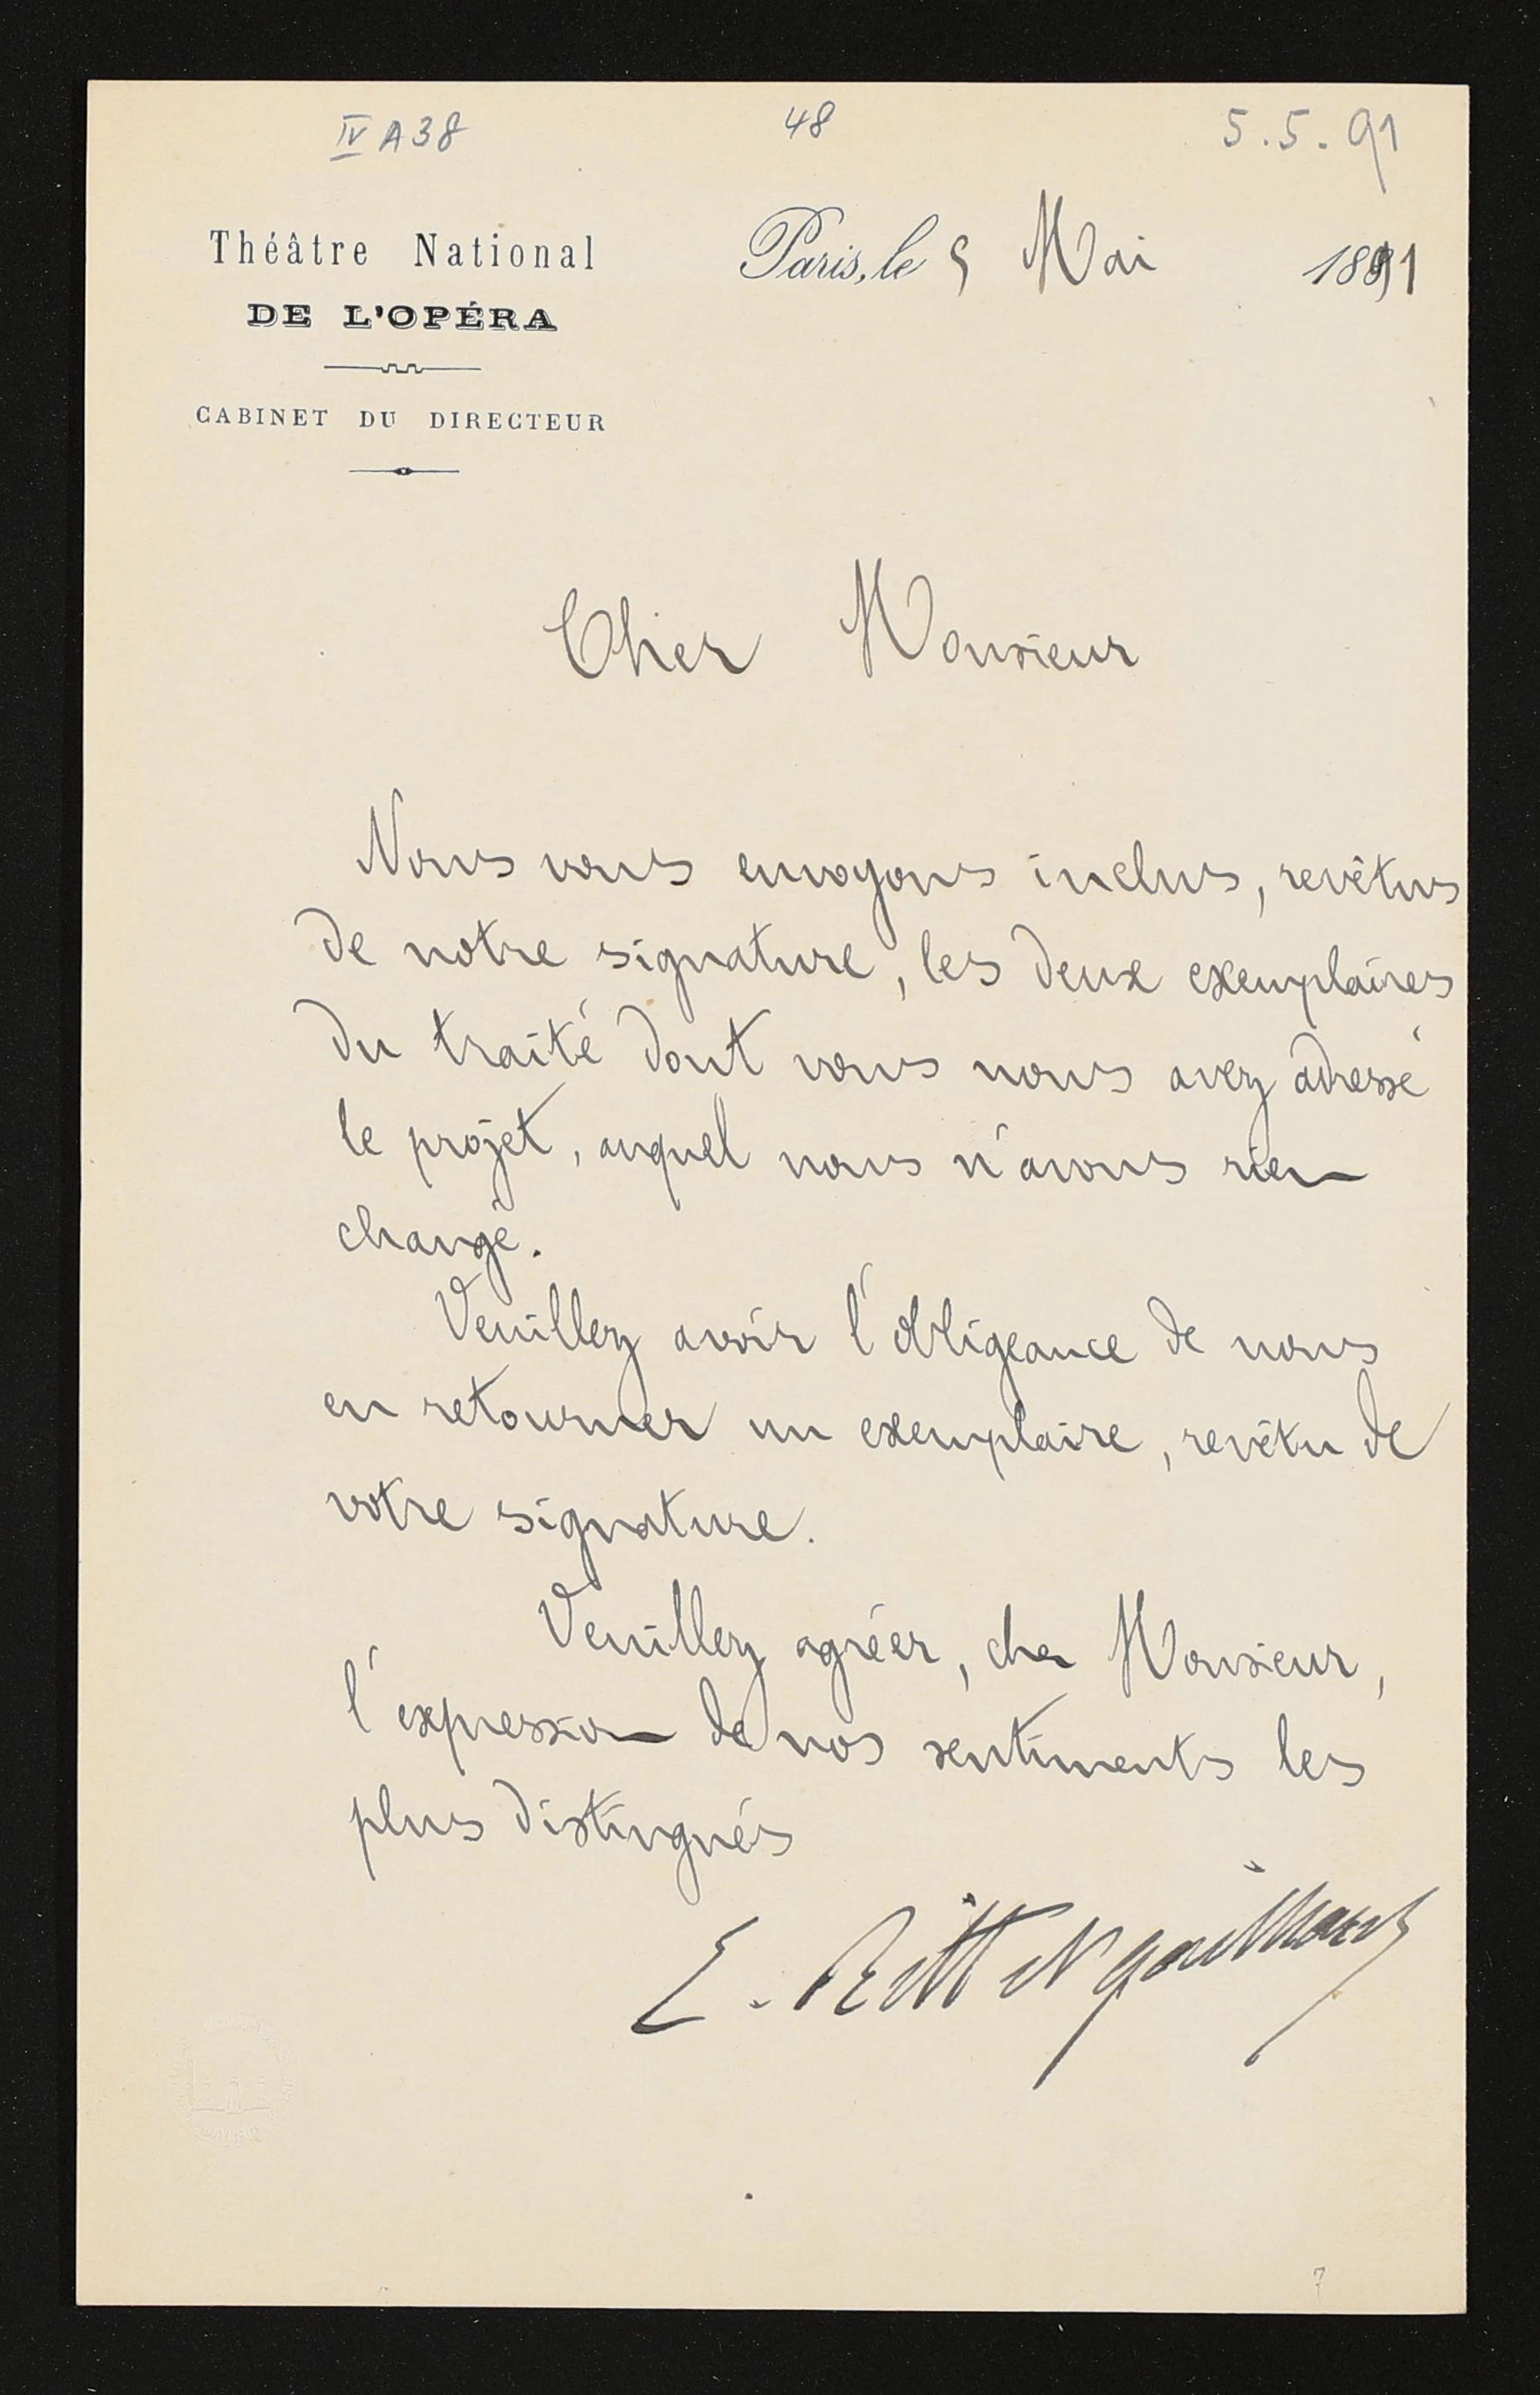 IV A38
48
5.5.91
Théâtre National
DE L'OPÉRA
CABINET DU DIRECTEUR
Paris, le 5 Mai 1891
Cher Monsieur
Nous vous envoyons inclus, revêtus
de notre signature, les deux exemplaires
du traité dont vous nous avez adressé
le projet, auquel nous n'avons rien
changé.
Veuillez avoir l'obligeance de nous
en retourner un exemplaire, revêtu de
votre signature.
Veuillez agréer, cher Monsieur,
l'expression de nos sentiments les
plus distingués
E. Ritt et Gailhard